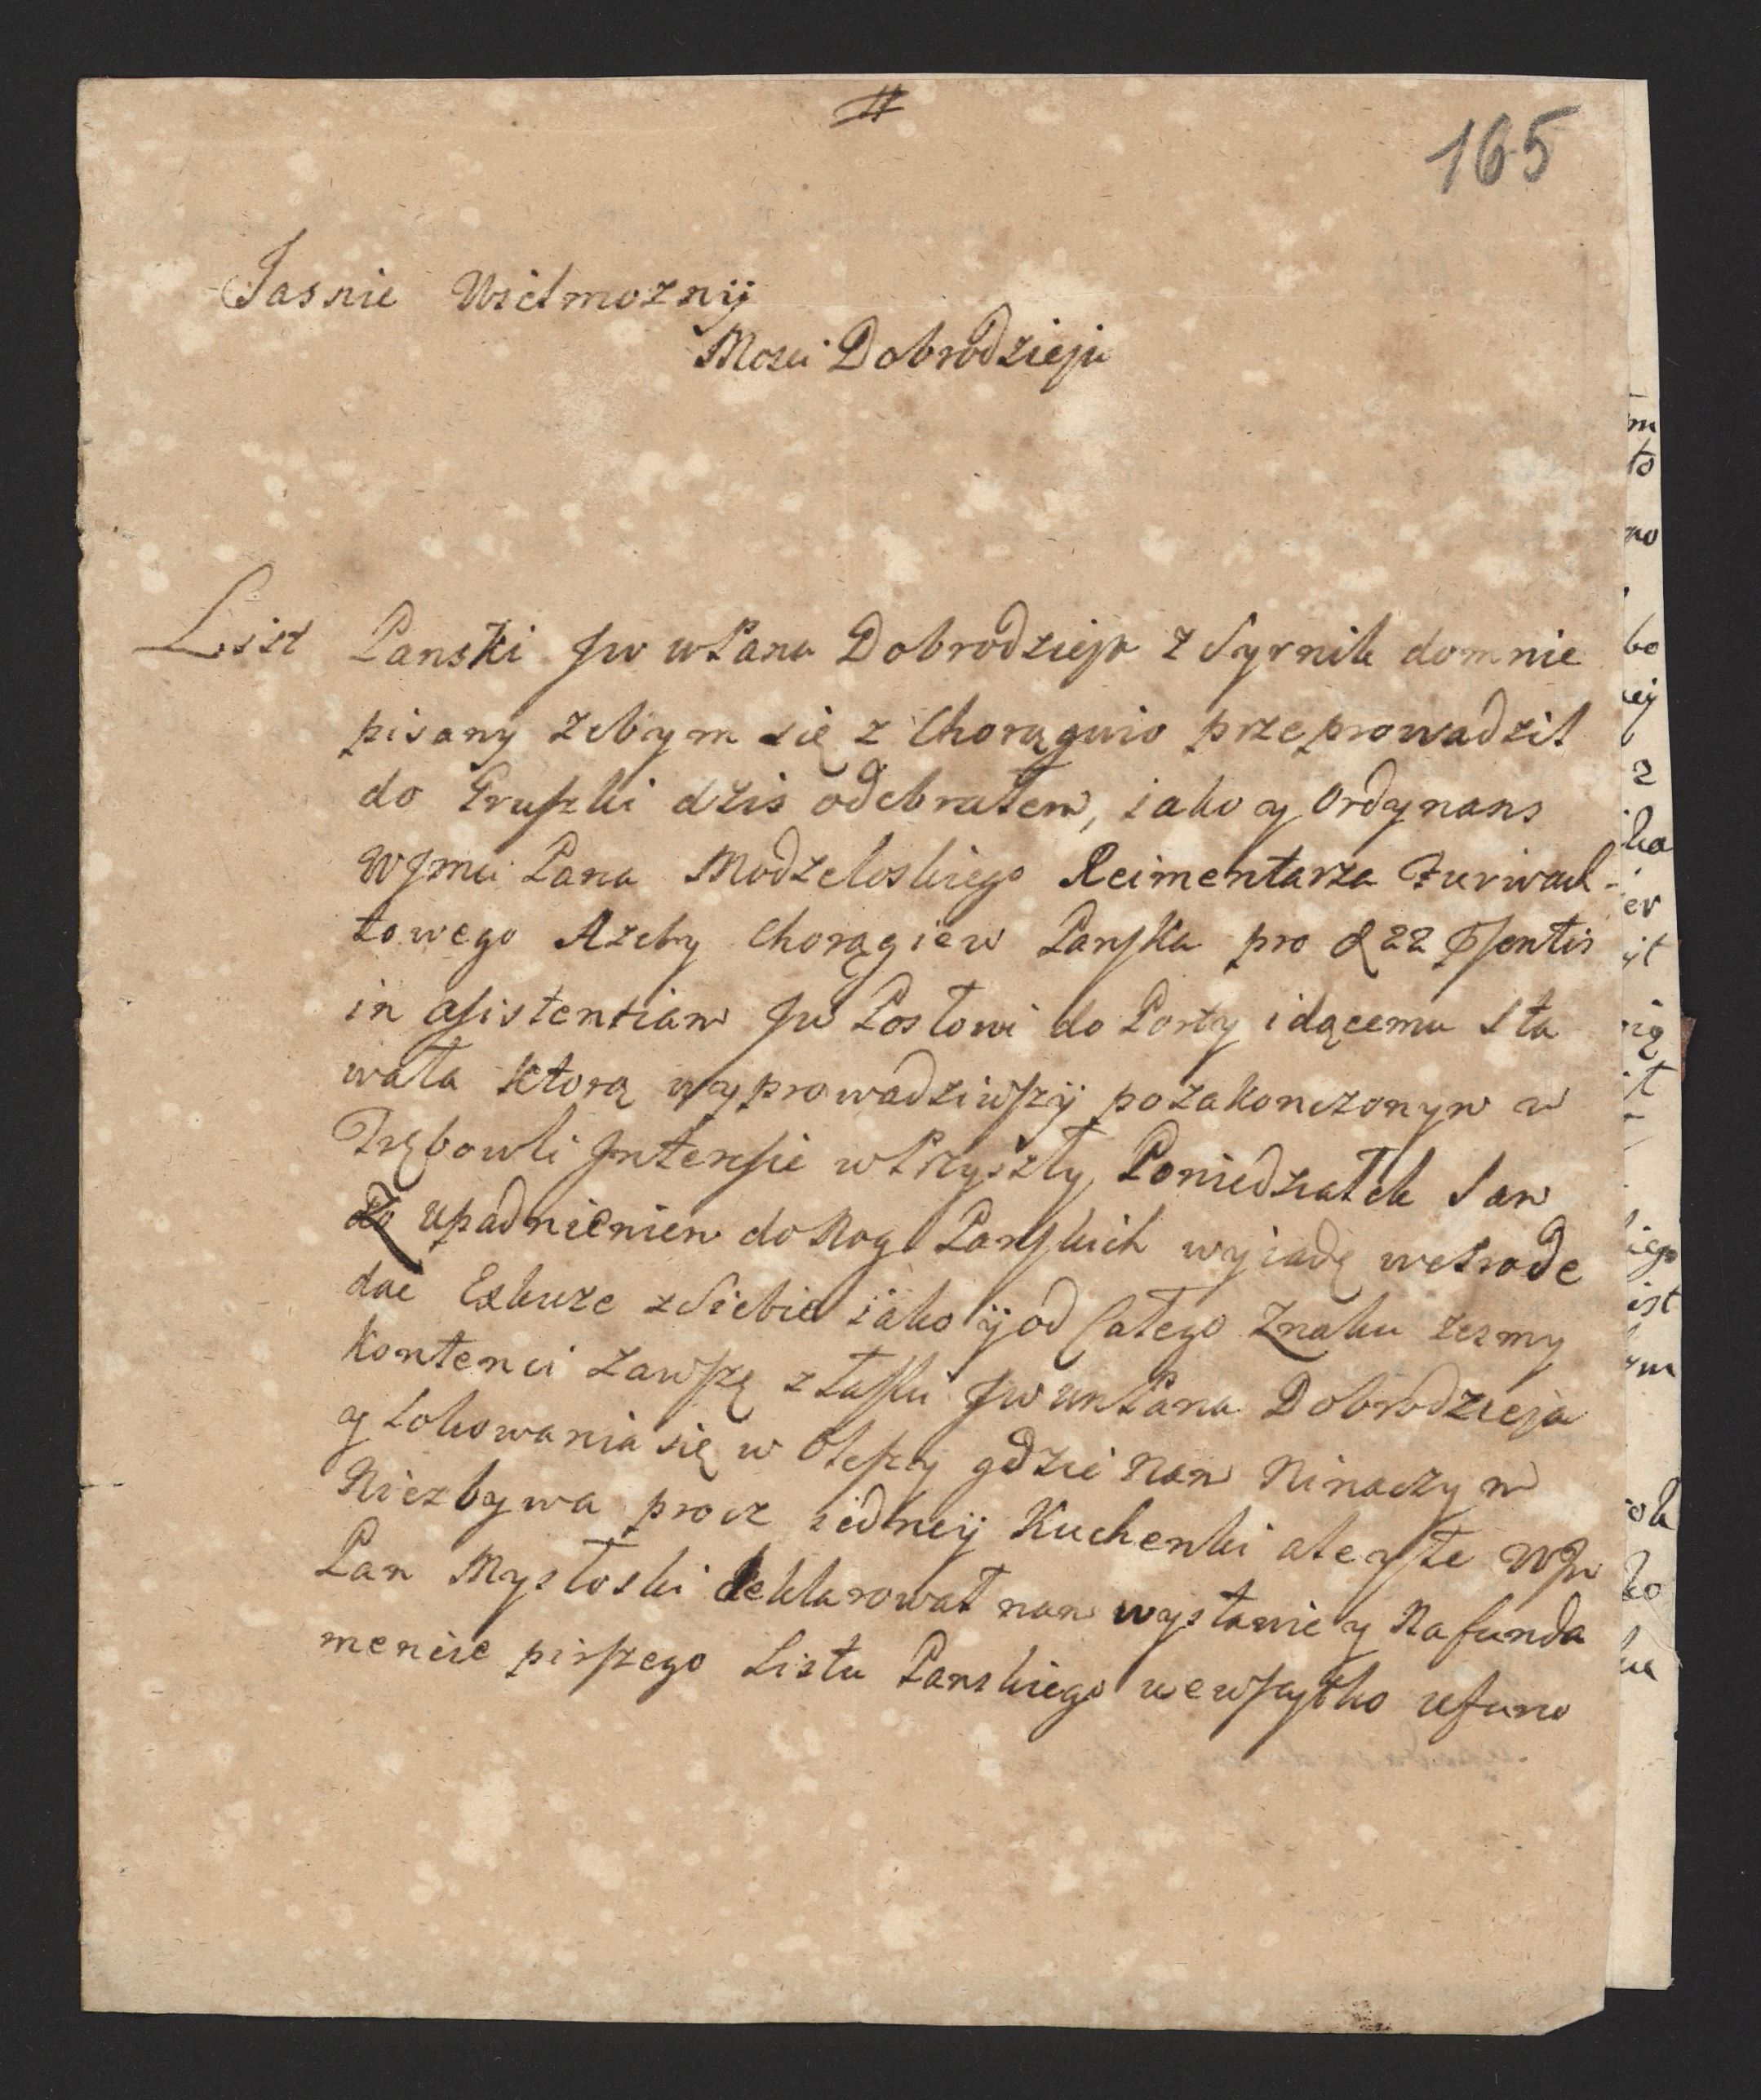 #
165
Jasnie Wielmoznÿ
Mosci Dobrodzieju
List Panski Jw wPana Dobrodzieja z Syrnik domnie
pisany zebym się z Chorągwio przeprowadził
do Gruszki dzis odebrałem, iako y Ordynans
WJmci Pana Modzeloskiego Reimentarza Furwach-
towego Azeby Chorągiew Panska pro d 22 Psentis
in asistentiam Jw Posłowi do Porty idącemu sta
wała ktorą wyprowadziwszÿ pozakonczonym w
Trębowli Interesie wPrzyszły Poniedziałek sam
do upadnieniem do Nog Panskich wyiadę weSrode
dac Exkuze zSiebie iako ÿ od Całego Znaku zesmy
Kontenci zawszę z łaski Jw wmPana Dobrodzieja
y Lokowania się w Oleszy gdzie Nam Ninaczym
Niezbywa procz iedneÿ Kuchenki ale y te WJm
Pan Mysłoski deklarował nam wystawic y Nafunda
mencie pirszego Listu Panskiego wewszytko ufuno